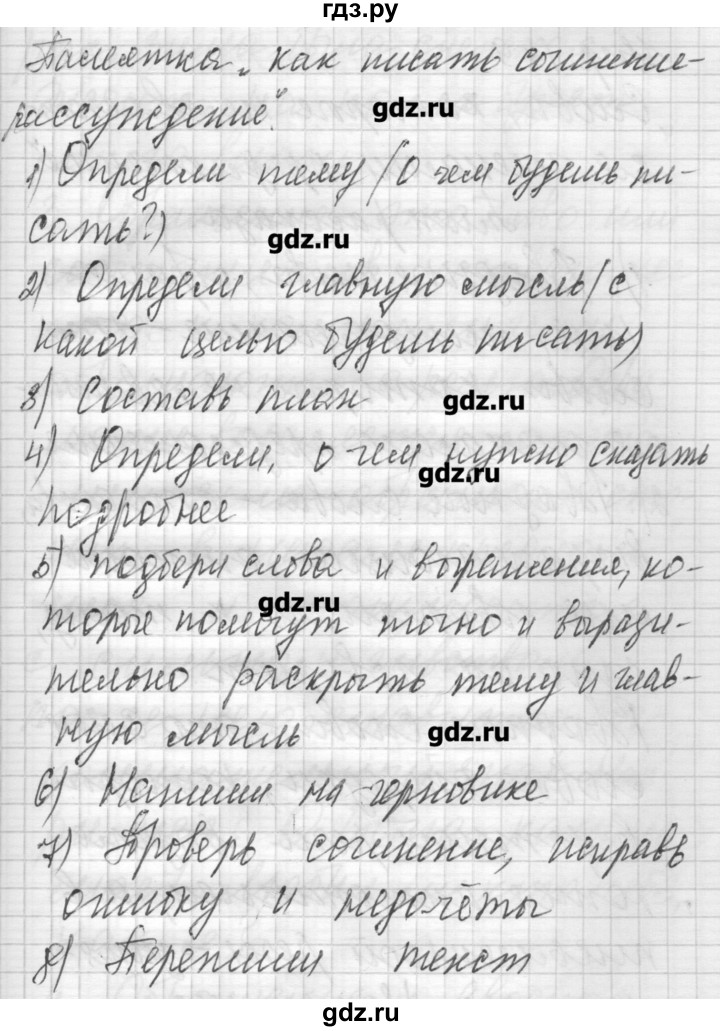 гдз.ру
Памятка „как писать сочинение-
рассуждение".
gdz.ru
1) Определи тему (о чем будешь пи-
сать?)
gdz.ru
2) Определи главную мысль (с
какой целью будешь писать)
3) Составь план
gdz.ru
4) Определи, о чем нужно сказать
gdz.ru
подробнее
5) подбери слова и выражения, ко-
gdz.ru
торые помогут точно и вырази-
тельно раскрыть тему и глав-
ную мысль
gdz.ru
6) Напиши на черновике
7) Проверь сочинение, исправь
ошибку и недочёты
8) Перепиши текст
gdz.ru